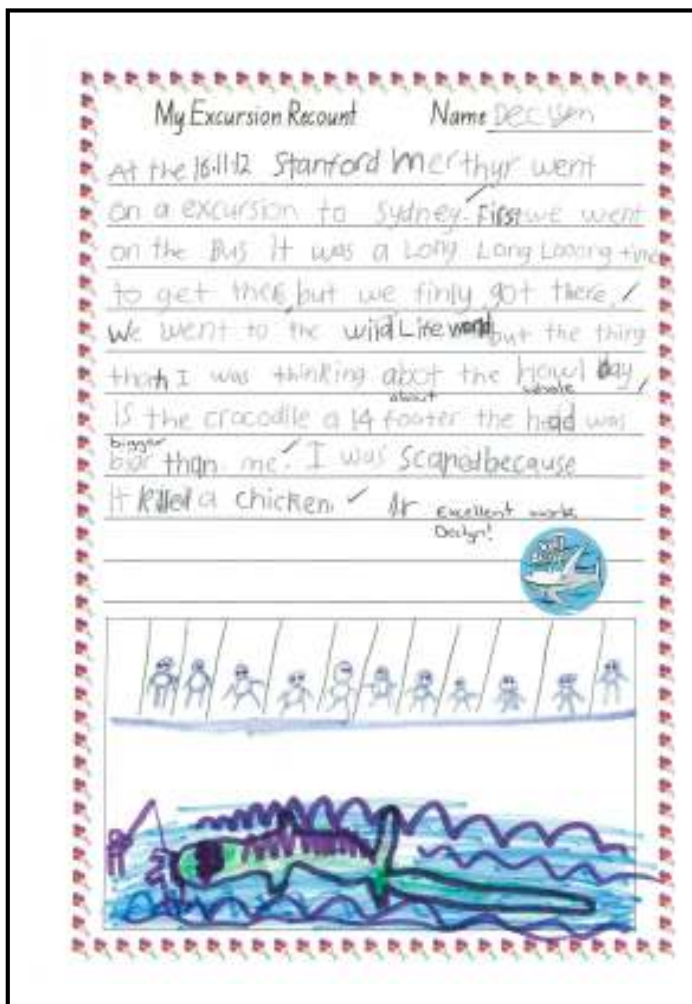 My Excursion Recount Name Declyen
At the 16.11.12 Stanford Merthyr went
on a excursion to Sydney. First we went
on the Bus it was a Long Long Looong time
to get there, but we finly got there.
We went to the wild Life world but the thing
I was thinking abot the howl day,
about whole
is the crocodile a 14 footer the head was
bigger
than me. I was scared because
it killed a chicken.
Excellent work